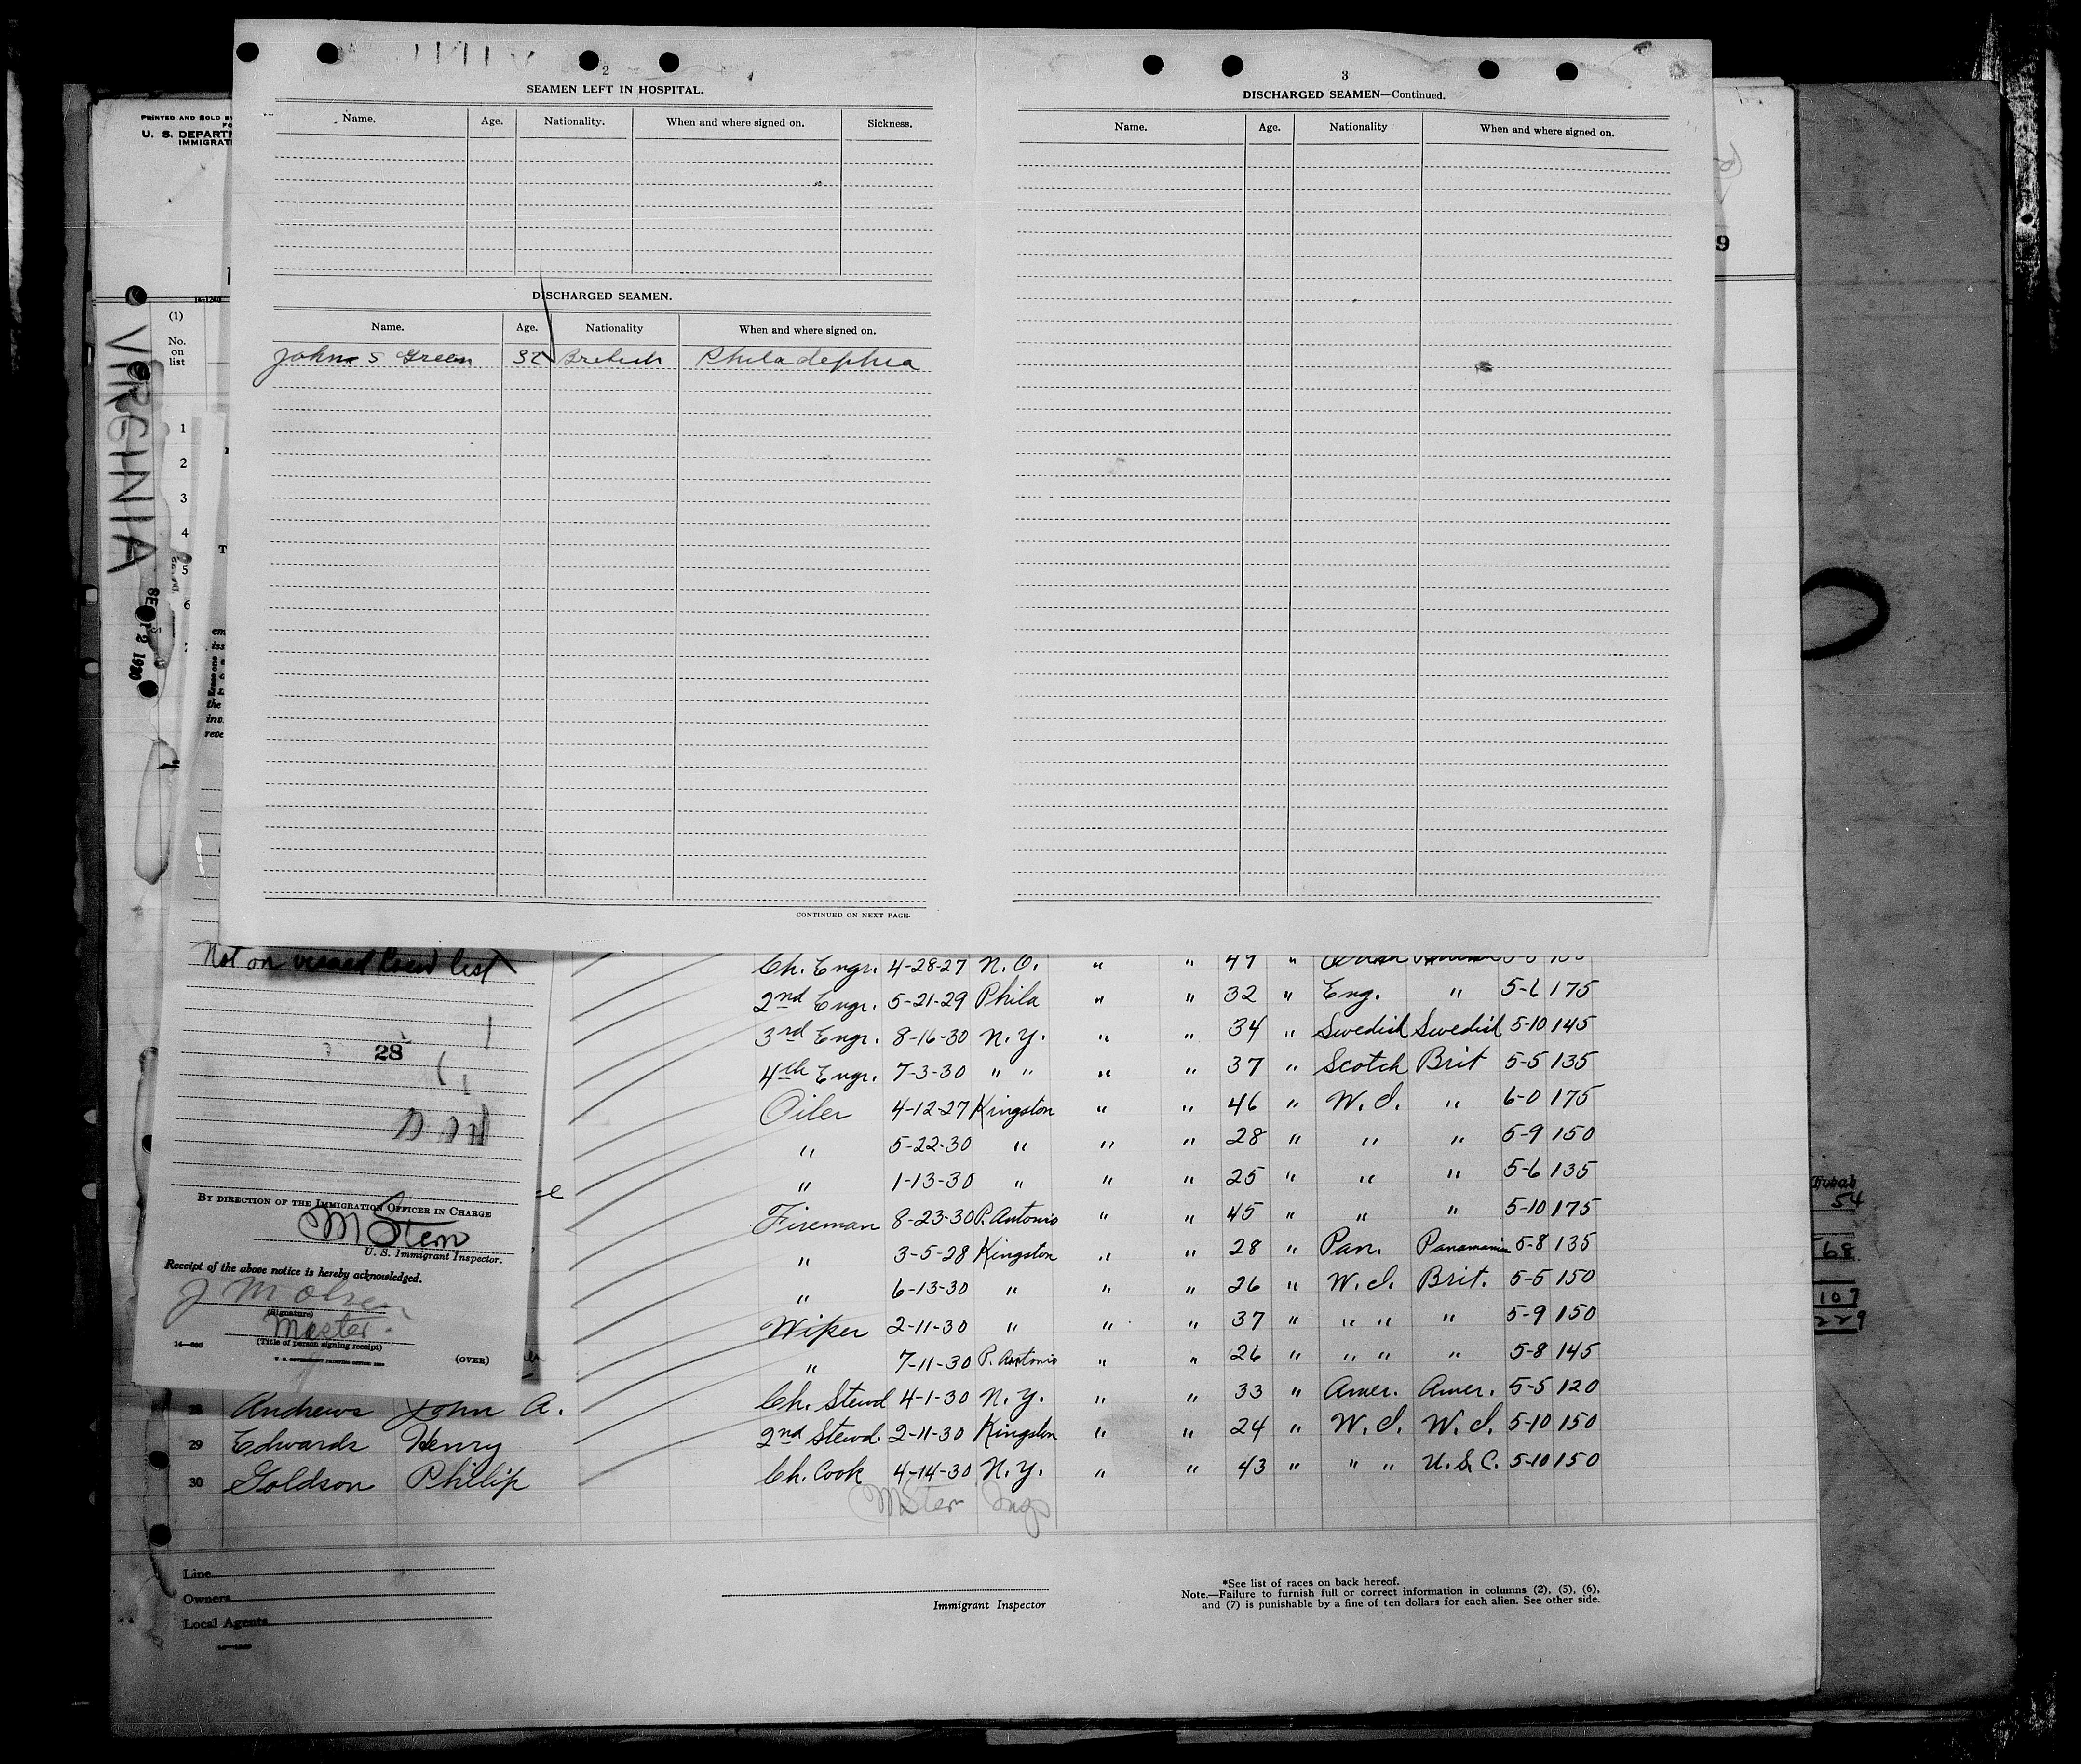 2
SEAMEN LEFT IN HOSPITAL.
Name. Age. Nationality. When and where signed on. Sickness.
DISCHARGED SEAMEN.
Name. Age. Nationality When and where signed on.
John S Green 32 British Philadephia
CONTINUED ON NEXT PAGE.
3
DISCHARGED SEAMEN—Continued.
Name. Age. Nationality When and where signed on.
9
PRINTED AND SOLD BY
U. S. DEPART
IMMIGRAT
(1)
No.
on
list
VIRGINIA
1
2
3
4
5
6
Not on visaed Crew list
28
BY DIRECTION OF THE IMMIGRATION OFFICER IN CHARGE
M Stern
U. S. Immigrant Inspector.
Receipt of the above notice is hereby acknowledged.
J M Olsen
(Signature)
Master.
(Title of person signing receipt)
U. S. GOVERNMENT PRINTING OFFICE
(OVER)
Ch. Engr. 4-28-27 N. O. " " 49 "
2nd Engr. 5-21-29 Phila " " 32 " Eng. " 5-6 175
3rd Engr. 8-16-30 N. Y. " " 34 " Swedish Swedish 5-10 145
4th Engr. 7-3-30 " " " " 37 " Scotch Brit 5-5 135
Oiler 4-12-27 Kingston " " 46 " W. I. " 6-0 175
" 5-22-30 " " " 28 " " " 5-9 150
" 1-13-30 " " " 25 " " " 5-6 135
Fireman 8-23-30 P. Antonio " " 45 " " " 5-10 175
" 3-5-28 Kingston " " 28 " Pan. Panamanian 5-8 135
" 6-13-30 " " " 26 " W. I. Brit. 5-5 150
Wiper 2-11-30 " " " 37 " " " " 5-9 150
" 7-11-30 P. Antonio " " 26 " " " " 5-8 145
28 Andrews John A. Ch. Stewd 4-1-30 N. Y. " " 33 " Amer. Amer. 5-5 120
29 Edwards Henry 2nd Stewd. 2-11-30 Kingston " " 24 " W. I. W. I. 5-10 150
30 Goldson Phillip Ch. Cook 4-14-30 N. Y. " " 43 " " " U. S. C. 5-10 150
M Stern Insp
Line
Owners
Local Agents
Immigrant Inspector
*See list of races on back hereof.
Note.—Failure to furnish full or correct information in columns (2), (5), (6),
and (7) is punishable by a fine of ten dollars for each alien. See other side.
Total
54
68
107
229